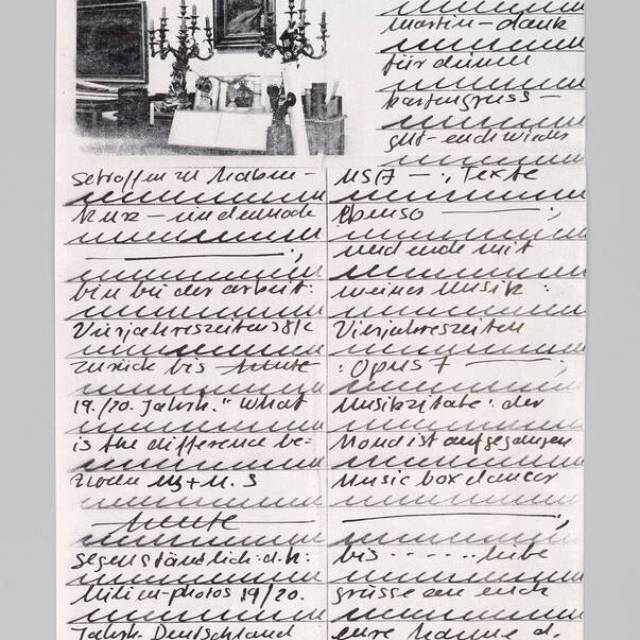 martin – dank
für deinen
kartengruss –
gut – euch wieder
getroffen zu haben –
kurz – und
bin bei der arbeit:
Vierjahreszeiten
zurück bis heute
19./20. Jahrh. "What
is the difference be=
heute
gegenständlich: d.h.
Milieu-photos 19/20.
Jahrh. Deutschland
USA – ., Texte
Ebenso — ,
und ende mit
meiner Musik :
Vierjahreszeiten
: Opus 7 —
Musikzitate: der
Mond ist aufgegangen
Music box dancer
bis ...... liebe
grüsse an euch
eure Hanne d.